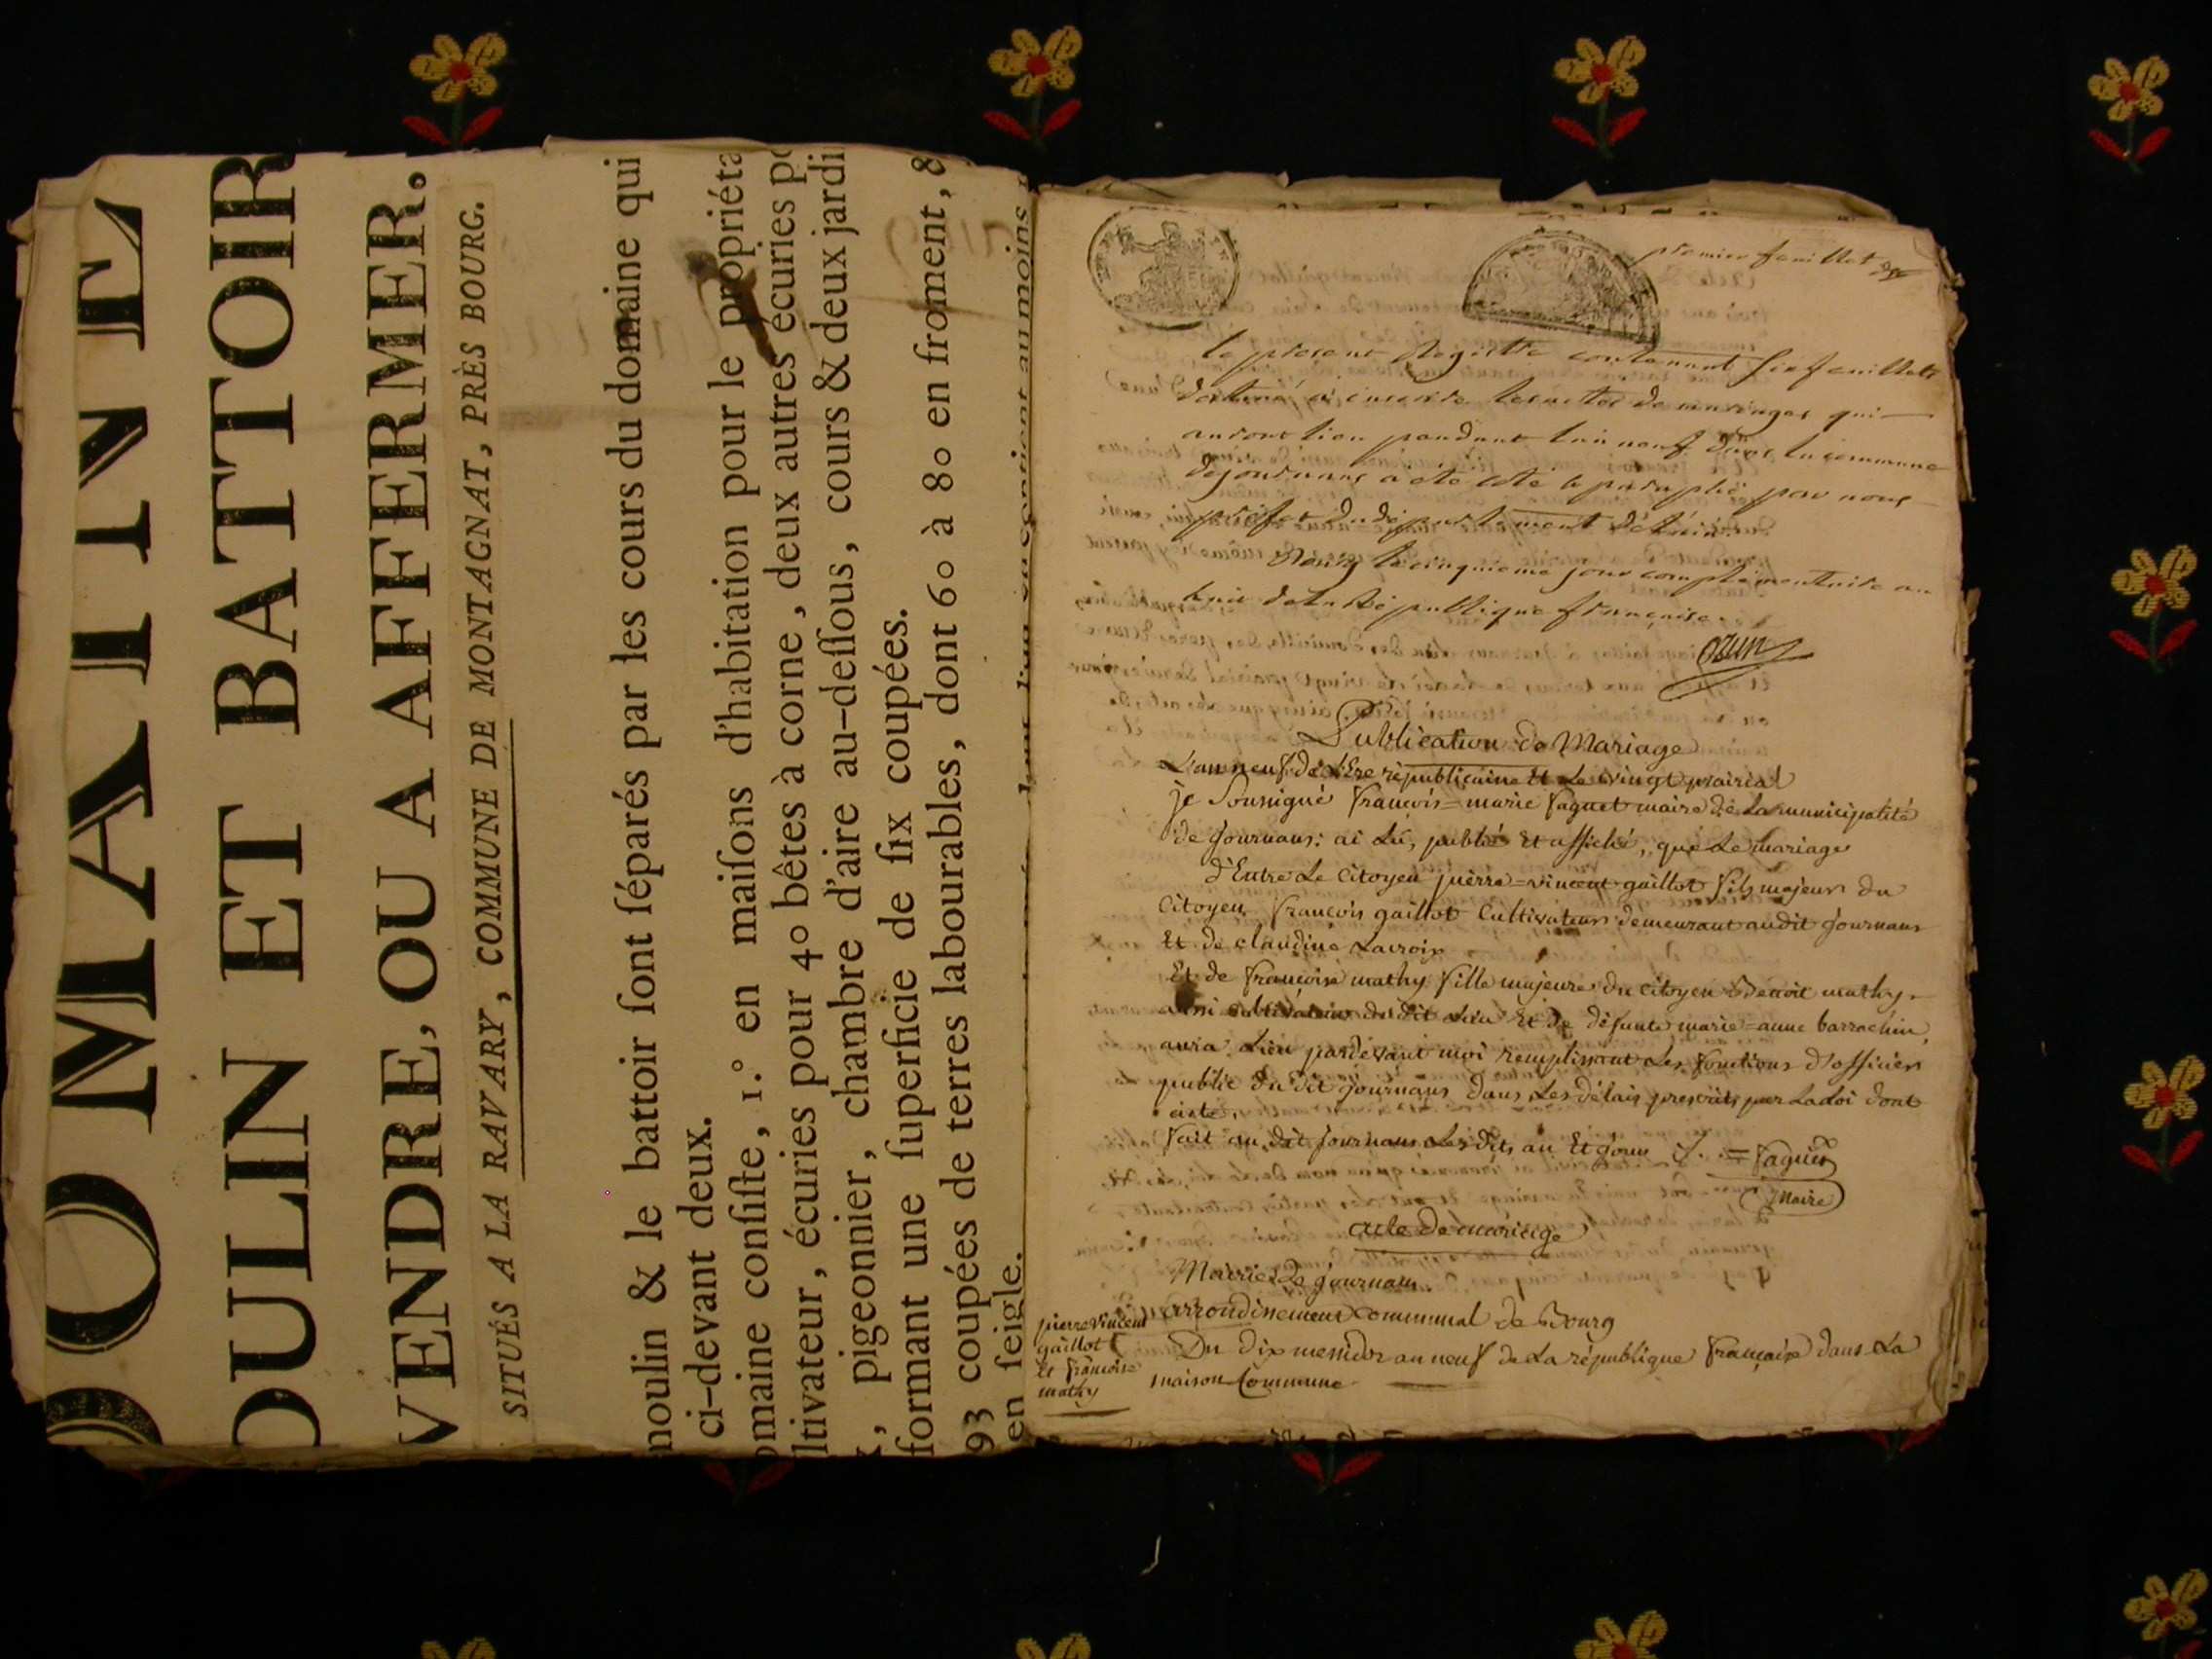 DOMAINE
OULIN ET BATTOIR
VENDRE, OU A AFFERMER.
SITUÉS A LA RAVARY, COMMUNE DE MONTAGNAT, PRÈS BOURG.
moulin & le battoir ſont ſéparés par les cours du domaine qui
ci-devant deux.
omaine conſiſte, 1.° en maiſons d'habitation pour le propriéta
ltivateur, écuries pour 40 bêtes à corne, deux autres écuries po
, pigeonnier, chambre d'aire au-deſſous, cours & deux jardi
formant une ſuperficie de ſix coupées.
93 coupées de terres labourables, dont 60 à 80 en froment, 8
en ſeigle.
premier feuillet
le present Registre contenant six feuillets
destiné à inscrire les actes de mariages qui
auront lieu pendant l'an neuf dans la commune
de journans a été coté & paraphé par nous
préfet du département de l'ain.
Bourg le cinquieme jour complémentaire an
huit de la République française.
ozun
Publication de Mariage
L'an neuf de L'Ere républicaine Et Le vingt prairial
je Soussigné françois=marie faguet maire de La municipalité
de journans: ai Lû, publié Et affiché, que Le mariage
d'Entre Le Citoyen pierre=vincent gaillot fils majeur du
Citoyen françois gaillot Cultivateur demeurant audit journans
Et de claudine Lacroix
Et de françoise mathy fille majeure du citoyen Benoit mathy
aussi cultivateur du dit Lieu Et de défunte marie=anne barrachin,
aura Lieu pardevant moi remplissant Les fonctions d'officier
public du dit journans dans Les délais prescrits par La Loi dont
acte.
fait au dit journans Les dits an Et jour f. = faguet
maire
acte de mariage
Mairie de journans
arrondissement communal de Bourg
pierre vincent
gaillot
Et françoise
mathy
Du dix messidor an neuf de La république française dans La
maison Commune